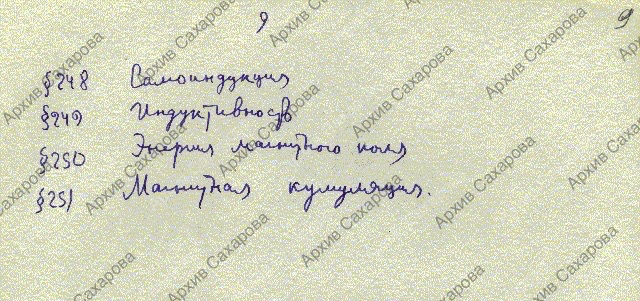 9 9
§248 Самоиндукция
§249 Индуктивность
§250 Энергия магнитного поля
§251 Магнитная кумуляция.
Архив Сахарова
Архив Сахарова
Архив Сахарова
Архив Сахарова
Архив Сахарова
Архив Сахарова
Архив Сахарова
Архив Сахарова
Архив Сахарова
Архив Сахарова
Архив Сахарова
Архив Сахарова